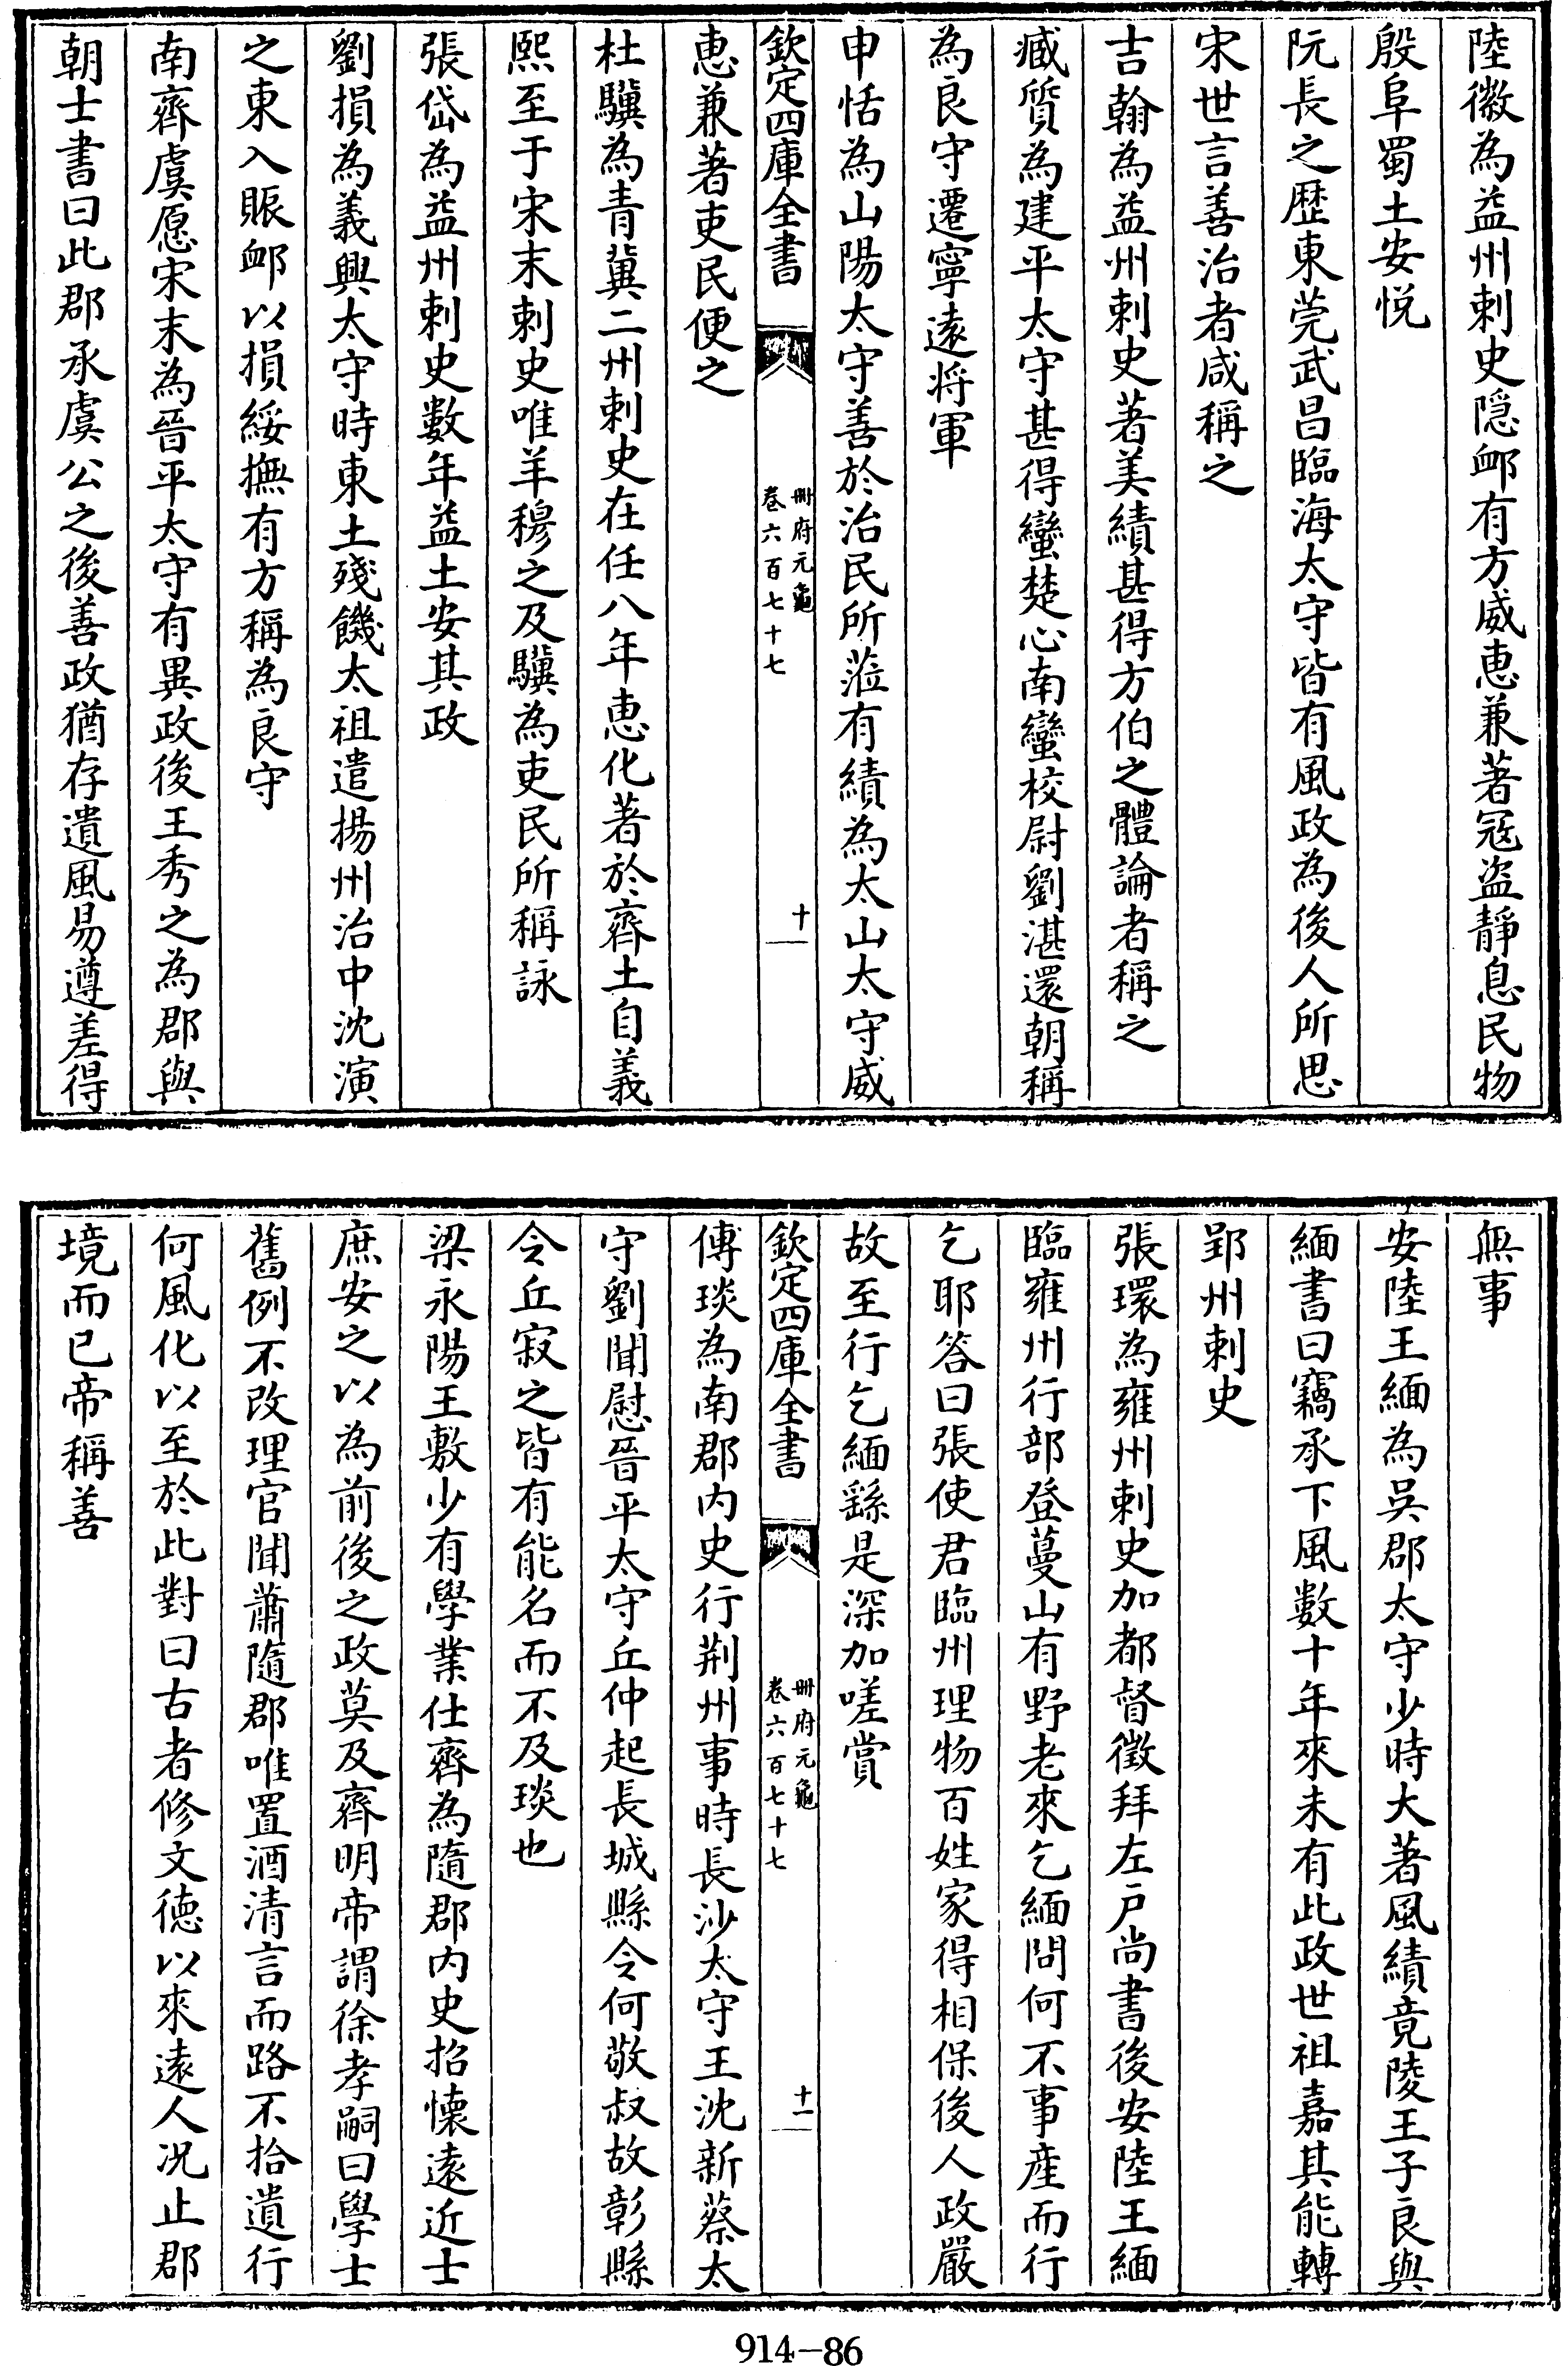 陸徽為益州刺史隠䘏有方威恵兼著冦盜靜息民物
殷阜蜀土安悅
阮長之歴東莞武昌臨海太守皆有風政為後人所思
宋世言善治者咸稱之
吉翰為益州刺史著美績甚得方伯之體論者稱之
臧質為建平太守甚得蠻楚心南蠻校尉劉湛還朝稱
為良守遷寧逺將軍
申恬為山陽太守善於治民所蒞有績為太山太守威
欽定四庫全書
冊府元龜
卷六百七十七
十
恵兼著吏民便之
杜驥為青冀二州刺史在任八年恵化著於齊土自義
熙至于宋末刺史唯羊穆之及驥為吏民所稱詠
張岱為益州刺史數年益土安其政
劉損為義興太守時東土殘饑太祖遣揚州治中沈演
之東入賑䘏以損綏撫有方稱為良守
南齊虞愿宋末為晉平太守有異政後王秀之為郡與
朝士書曰此郡承虞公之後善政猶存遺風易遵差得
無事
安陸王緬為吳郡太守少時大著風績竟陵王子良與
緬書曰竊承下風數十年來未有此政世祖嘉其能轉
郢州刺史
張環為雍州刺史加都督徵拜左戸尚書後安陸王緬
臨雍州行部登蔓山有野老來乞緬問何不事産而行
乞耶答曰張使君臨州理物百姓家得相保後人政嚴
故至行乞緬繇是深加嗟賞
欽定四庫全書
冊府元龜
卷六百七十七
十一
傅琰為南郡内史行荆州事時長沙太守王沈新蔡太
守劉聞慰晉平太守丘仲起長城縣令何敬叔故彰縣
令丘寂之皆有能名而不及琰也
梁永陽王敷少有學業仕齊為隨郡内史招懐逺近士
庶安之以為前後之政莫及齊明帝謂徐孝嗣曰學士
舊例不改理官聞蕭隨郡唯置酒清言而路不拾遺行
何風化以至於此對曰古者修文徳以來逺人况止郡
境而已帝稱善
914-86